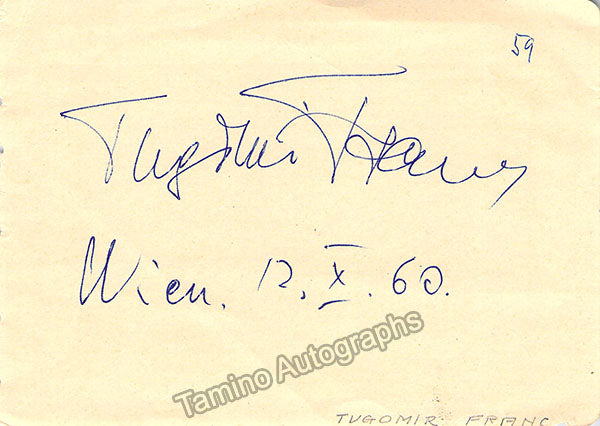 59
Tugomir Franc
Wien. 12. X. 60.
Tamino Autographs
TUGOMIR FRANC